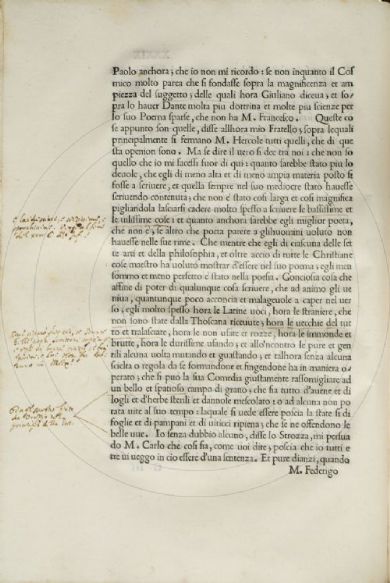 Paolo anchora; che io non mi ricordo: se non inquanto il Cos
mico molto parea che si fondasse sopra la magnificenza et am
piezza del suggetto; delle quali hora Giuliano diceua; et so,
pra lo hauer Dante molta piu dottrina et molte piu scienze per
lo suo Poema sparse, che non ha M. Francesco. Queste co
se appunto son quelle, disse allhora mio Fratello; sopra lequali
principalmente si fermano M. Hercole tutti quelli, che di que
sta openion sono. Ma se dire il uero si dee tra noi; che non so
quello che io mi facessi fuor di qui: quanto sarebbe stato piu lo
deuole, che egli di meno alta et di meno ampia materia posto si
fosse a scriuere, et quella sempre nel suo mediocre stato hauesse
scriuendo contenuta; che non è stato cosi larga et cosi magnifica
pigliandola lasciarsi cadere molto spesso a scriuere le bassissime et
le uilissime cose: et quanto anchora sarebbe egli miglior poeta,
che non è; se altro che poeta parere a glihuomini uoluto non
hauesse nelle sue rime. Che mentre che egli di ciascuna delle set
te arti et della philosophia, et oltre accio di tutte le Christiane
cose maestro ha uoluto mostrar d'esser nel suo poema; egli men
sommo et meno perfetto è stato nella poesia. Conciosia cosa che
affine di poter di qualunque cosa scriuere, che ad animo gli ue
niua, quantunque poco acconcia et malageuole a caper nel uer
so; egli molto spesso hora le Latine uoci, hora le straniere, che
non sono state dalla Thoscana riceuute; hora le uecchie del tut
to tralasciate, hora le non usate et rozze, hora le immonde et
brutte, hora le durissime usando; et allo'ncontro le pure et gen
tili alcuna uolta mutando et guastando; et talhora senza alcuna
scielta o regola da se formandone et fingendone ha in maniera o,
perato; che si puo la sua Comedia giustamente rassomigliare ad
un bello et spatioso campo di grano; che sia tutto d'auene et di
logli et d'herbe sterili et dannose mescolato: o ad alcuna non po
tata uite al suo tempo: laquale si uede essere poscia la state si di
foglie et di pampani et di uiticci ripiena; che se ne offendono le
belle uue. Io senza dubbio alcuno, disse lo Strozza, mi persua
do M. Carlo che cosi sia, come uoi dite; poscia che io tutti e
tre ui ueggo in cio essere d'una sentenza. Et pure dianzi, quando
M. Federigo